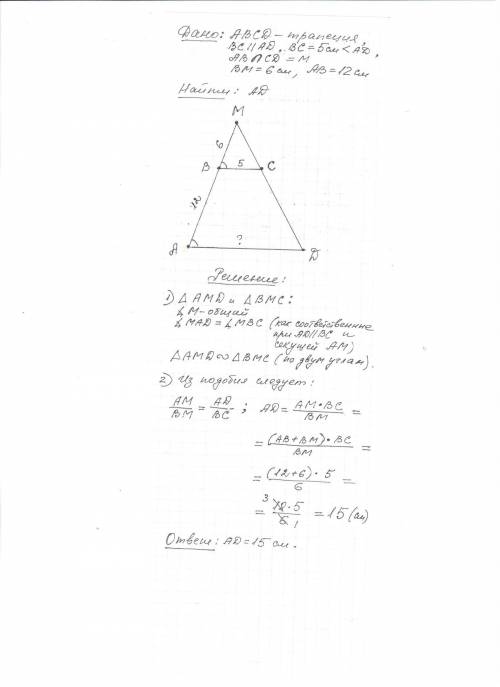 Дано: ABCD – трапеция,
BC || AD, BC = 5 см < AD,
AB ∩ CD = M
BM = 6 см, AB = 12 см
Найти: AD
M
6
B 5 C
12
A ? D
Решение:
1) △ AMD и △ BMC:
∡ M – общий
∡ MAD = ∡ MBC (как соответственные
при AD || BC и
секущей AM)
△ AMD ∾ △ BMC (по двум углам).
2) Из подобия следует:
AM/BM = AD/BC ; AD = AM·BC/BM =
= (AB+BM)·BC/BM =
= (12+6)·5/6 =
= 3 18·5/6 1 = 15 (см)
Ответ: AD = 15 см.